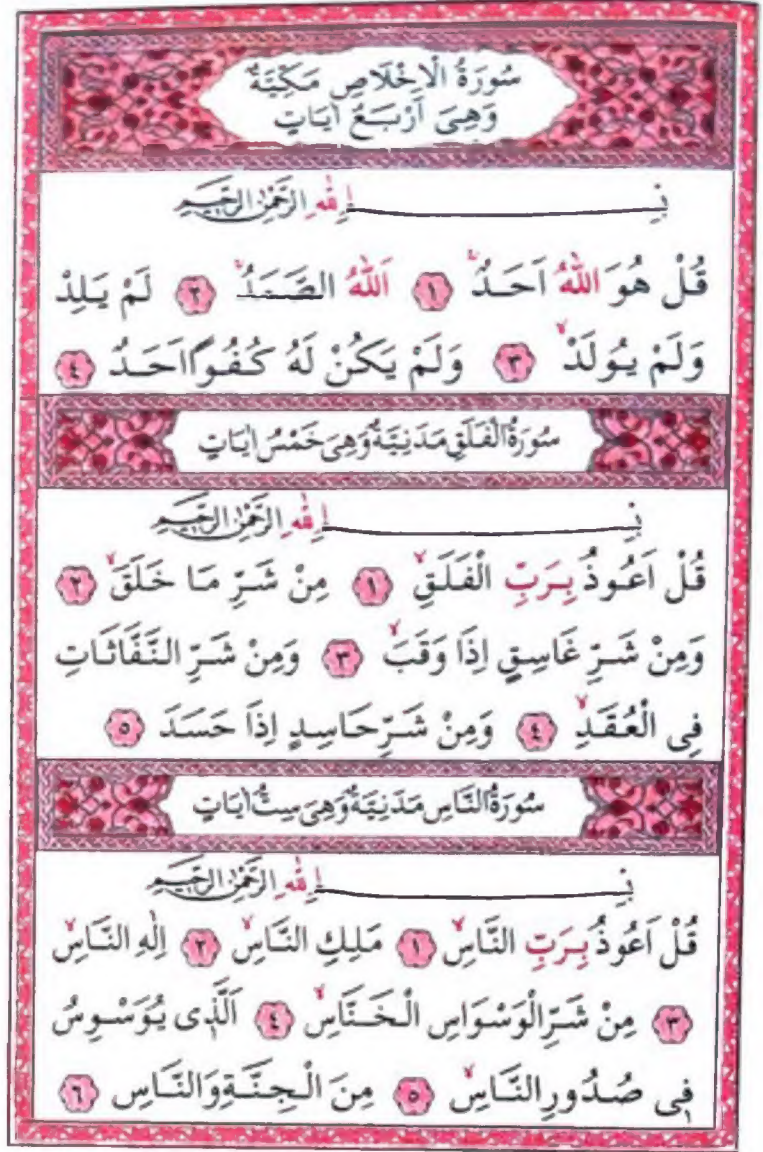 سُورَةُ الْاِخْلَاصِ مَكِّيَّةٌ
وَهِىَ اَرْبَعُ اٰيَاتٍ
بِسْمِ اللّٰهِ الرَّحْمٰنِ الرَّحِيمِ
قُلْ هُوَ اللّٰهُ اَحَدٌۚ ﴿١﴾ اَللّٰهُ الصَّمَدُۚ ﴿٢﴾ لَمْ يَلِدْ
وَلَمْ يُولَدْۙ ﴿٣﴾ وَلَمْ يَكُنْ لَهُ كُفُوًا اَحَدٌ ﴿٤﴾
سُورَةُ الْفَلَقِ مَدَنِيَّةٌ وَهِىَ خَمْسُ اٰيَاتٍ
بِسْمِ اللّٰهِ الرَّحْمٰنِ الرَّحِيمِ
قُلْ اَعُوذُ بِرَبِّ الْفَلَقِۙ ﴿١﴾ مِنْ شَرِّ مَا خَلَقَۙ ﴿٢﴾
وَمِنْ شَرِّ غَاسِقٍ اِذَا وَقَبَۙ ﴿٣﴾ وَمِنْ شَرِّ النَّفَّاثَاتِ
فِى الْعُقَدِۙ ﴿٤﴾ وَمِنْ شَرِّ حَاسِدٍ اِذَا حَسَدَ ﴿٥﴾
سُورَةُ النَّاسِ مَدَنِيَّةٌ وَهِىَ سِتُّ اٰيَاتٍ
بِسْمِ اللّٰهِ الرَّحْمٰنِ الرَّحِيمِ
قُلْ اَعُوذُ بِرَبِّ النَّاسِۙ ﴿١﴾ مَلِكِ النَّاسِۙ ﴿٢﴾ اِلٰهِ النَّاسِۙ
﴿٣﴾ مِنْ شَرِّ الْوَسْوَاسِ الْخَنَّاسِۙ ﴿٤﴾ اَلَّذِى يُوَسْوِسُ
فِى صُدُورِ النَّاسِۙ ﴿٥﴾ مِنَ الْجِنَّةِ وَالنَّاسِ ﴿٦﴾